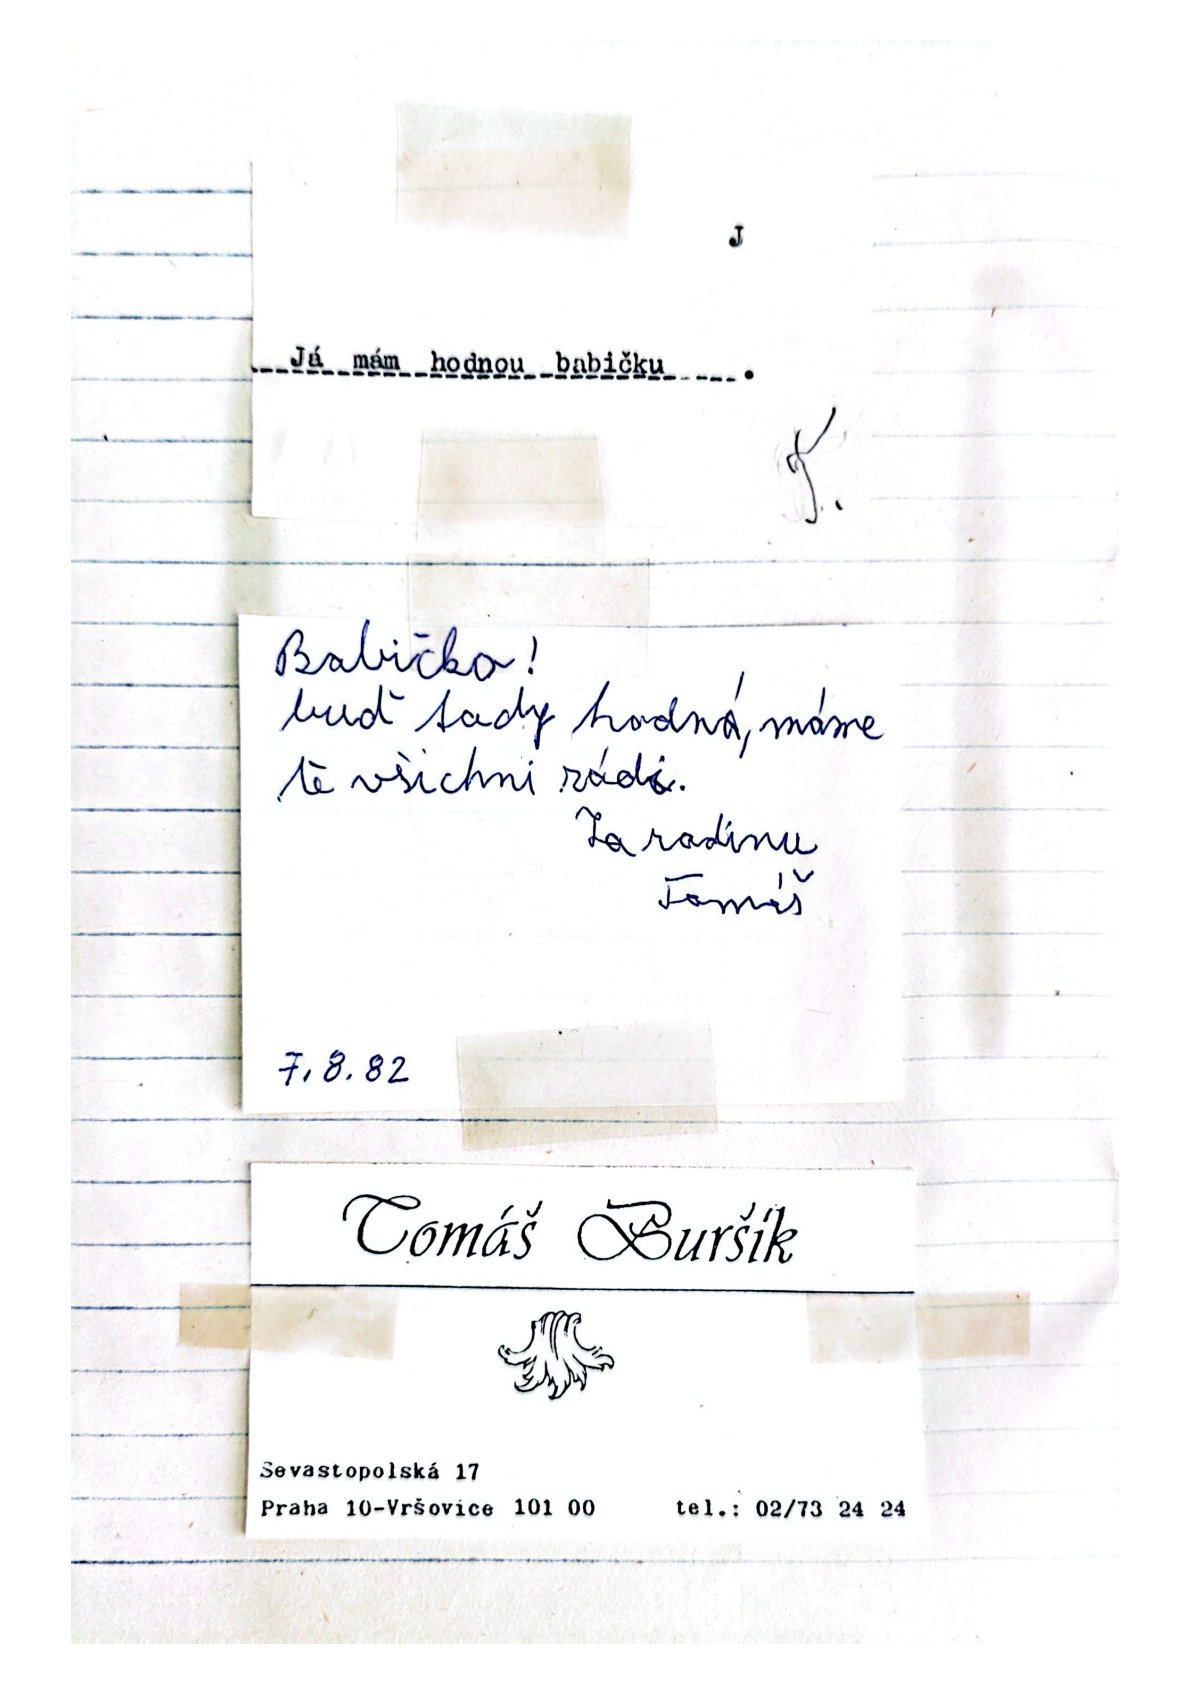 J
Já mám hodnou babičku.
T.
Babičko!
buď tady hodná, máme
tě všichni rádi.
Za rodinu
Tomáš
7.8.82
Tomáš Buršík
Sevastopolská 17
Praha 10-Vršovice 101 00 tel.: 02/73 24 24